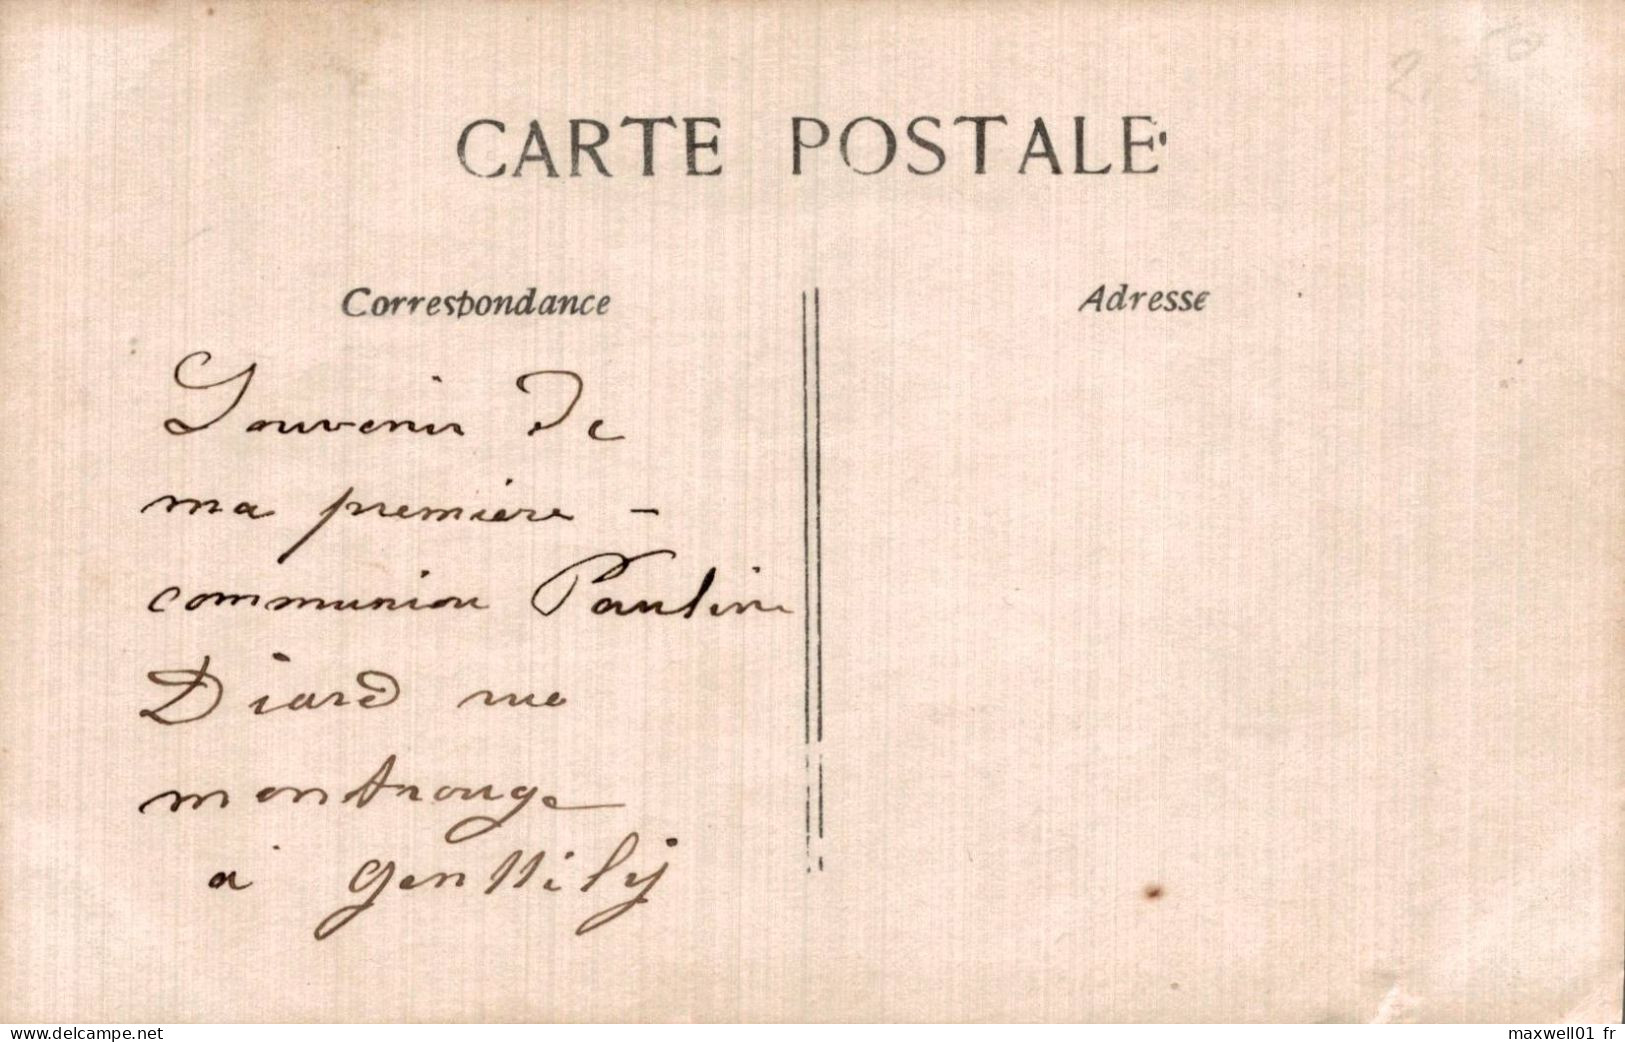 CARTE POSTALE
Correspondance
Adresse
Souvenir de
ma premiere -
communion Pauline
Diard rue
montrouge
a genttily
www.delcampe.net
maxwell01 fr